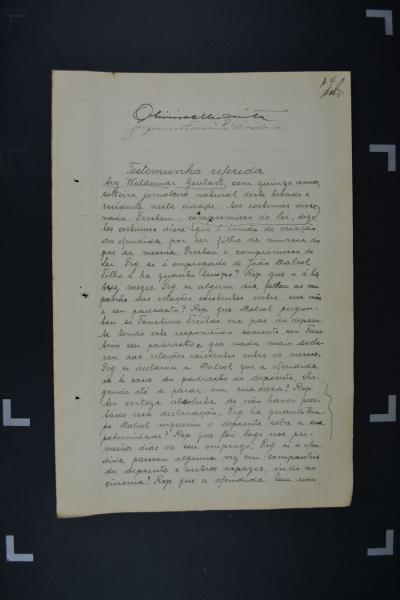 Testemunha referida
Ary Waldemar Goulart, com quinze annos,
solteiro, jornaleiro, natural deste Estado e
residente nesta cidade. Aos costumes disse
nada. Prestou o compromisso de lei, digo,
Aos costumes disse que é irmão de criação
da offendida por ser filho da amasia do
pae da mesma. Prestou o compromisso de
lei. Prg. si é empregado de João Dalsol
Filho e ha quanto tempo? Rep. que o é ha
tres mezes. Prg. si algum dia fallou ao seu
patrão das relações existentes entre sua mãe
e seu padrasto? Rep. que Dalsol pergun-
tou si Faustino Freitas era pae do depoen-
te tendo este respondido somente ser Faus-
tino seu padrasto e que nada mais decla-
rou das relações existentes entre os mesmos.
Prg. si declarou a Dalsol que a offendida
ia á casa do padrasto do depoente, che-
gando até a parar em sua casa? Rep.
ter certeza absoluta de não haver pres-
tado essa declaração. Prg. ha quanto tem-
po Dalsol inqueriu o depoente sobre a sua
paternidade? Rep. que foi logo nos pri-
meiros dias de seu emprego. Prg. si a offen-
dida passeou alguma vez em companhia
do depoente e outros rapazes, indo ao
cinema? Rep. que a offendida tem um